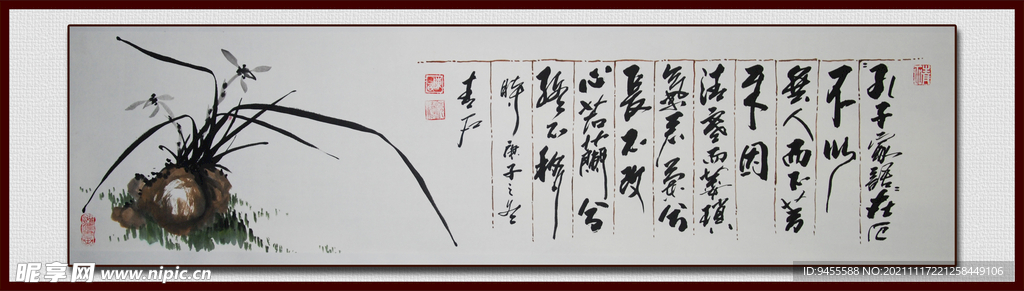 "孔子家語"在厄
不以
無人而不芳
不因
清寒而萎瑣
氣若蘭兮
長不改
心若蘭兮
終不移
時庚子之冬
青石
昵享网 www.nipic.cn
ID:9455588 NO:20211117221258449106